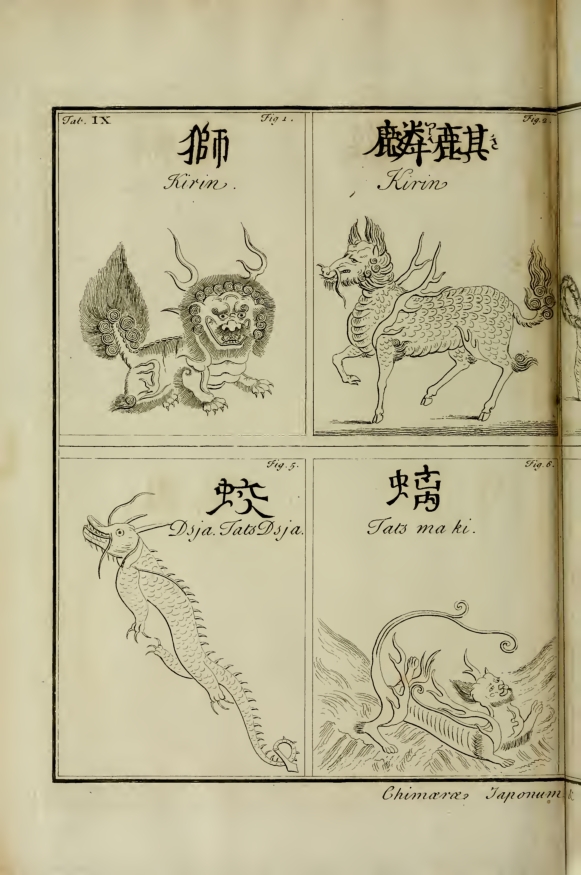 Tab. IX
Fig 1.
獅
Kirin.
Fig. 2.
麒麟
Kirin
Fig. 5.
蛟
Dsja. Tats Dsja.
Fig. 6.
螭
Tats ma ki.
Chimæræ Japonum